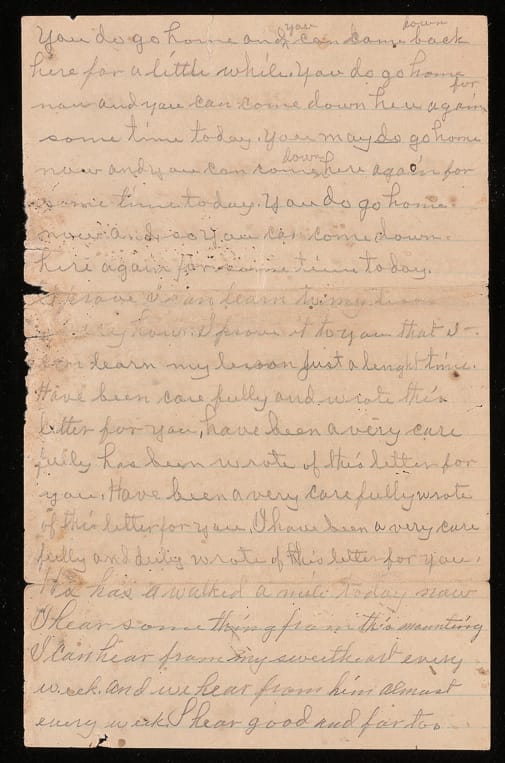 You do go home and you can come down back
here for a little while. You do go home
now and you can come down here again for
some time today. You may do go home
now and you can come down here again for
some time today. You do go home
now and so you can come down
here again for some time today.
I prove I can learn to my
I prove it to you that I
can learn my lesson just a lenght time.
Have been care fully and wrote this
letter for you, have been a very care
fully has been wrote of this letter for
you. Have been a very care fully wrote
of this letter for you. I have been a very care
fully and wrote of this letter for you.
has a walked a mile today now
I hear some thing from this
I can hear from my sweetheart every
week. and we hear from him almost
every week I hear good and far too